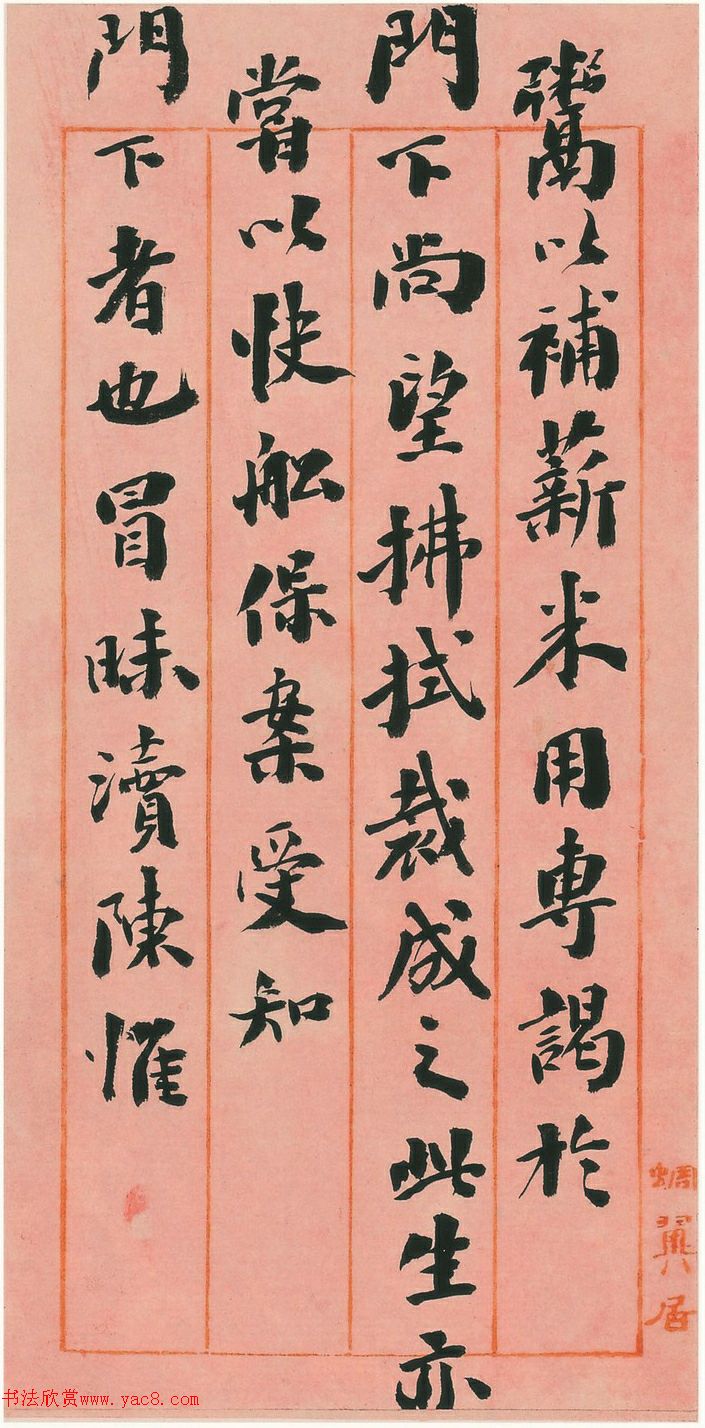 鬻以補薪米用専謁於
門下尚望拂拭裁成之此生亦
嘗以快舩保案受知
門下者也冒昧瀆陳惟
蜩翼居
书法欣赏www.yac8.com